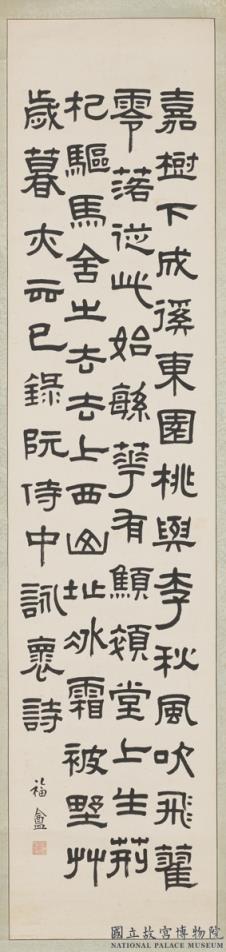 嘉樹下成徯東園桃與李秋風吹飛藿
零落從此始緐華有顦顇堂上生荊
杞驅馬舍之去去上西山址冰霜被野艸
歲暮亦云已錄阮侍中詠褱詩
福盦
國立故宮博物院
NATIONAL PALACE MUSEUM